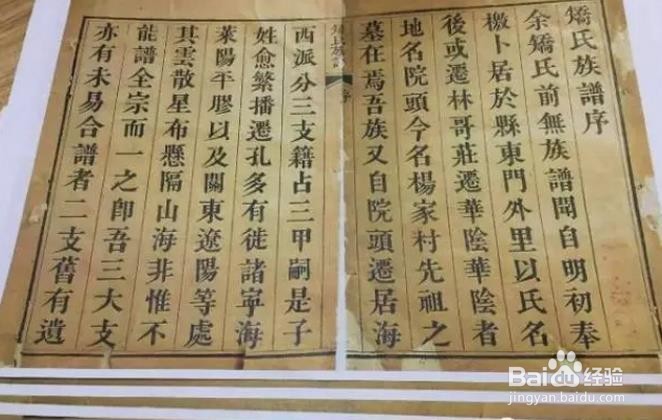 矯氏族譜序
余矯氏前無族譜聞自明初奉
檄卜居於縣東門外里以氏名
後或遷林哥莊遷華陰華陰者
地名院頭今名楊家村先祖之
墓在焉吾族又自院頭遷居海
矯氏族譜 序
西派分三支籍占三甲嗣是子
姓愈繁播遷孔多有徙諸寧海
萊陽平膠以及關東遼陽等處
其雲散星布懸隔山海非惟不
能譜全宗而一之卽吾三大支
亦有未易合譜者二支舊有遺
Baidu 经验
jingyan.baidu.com